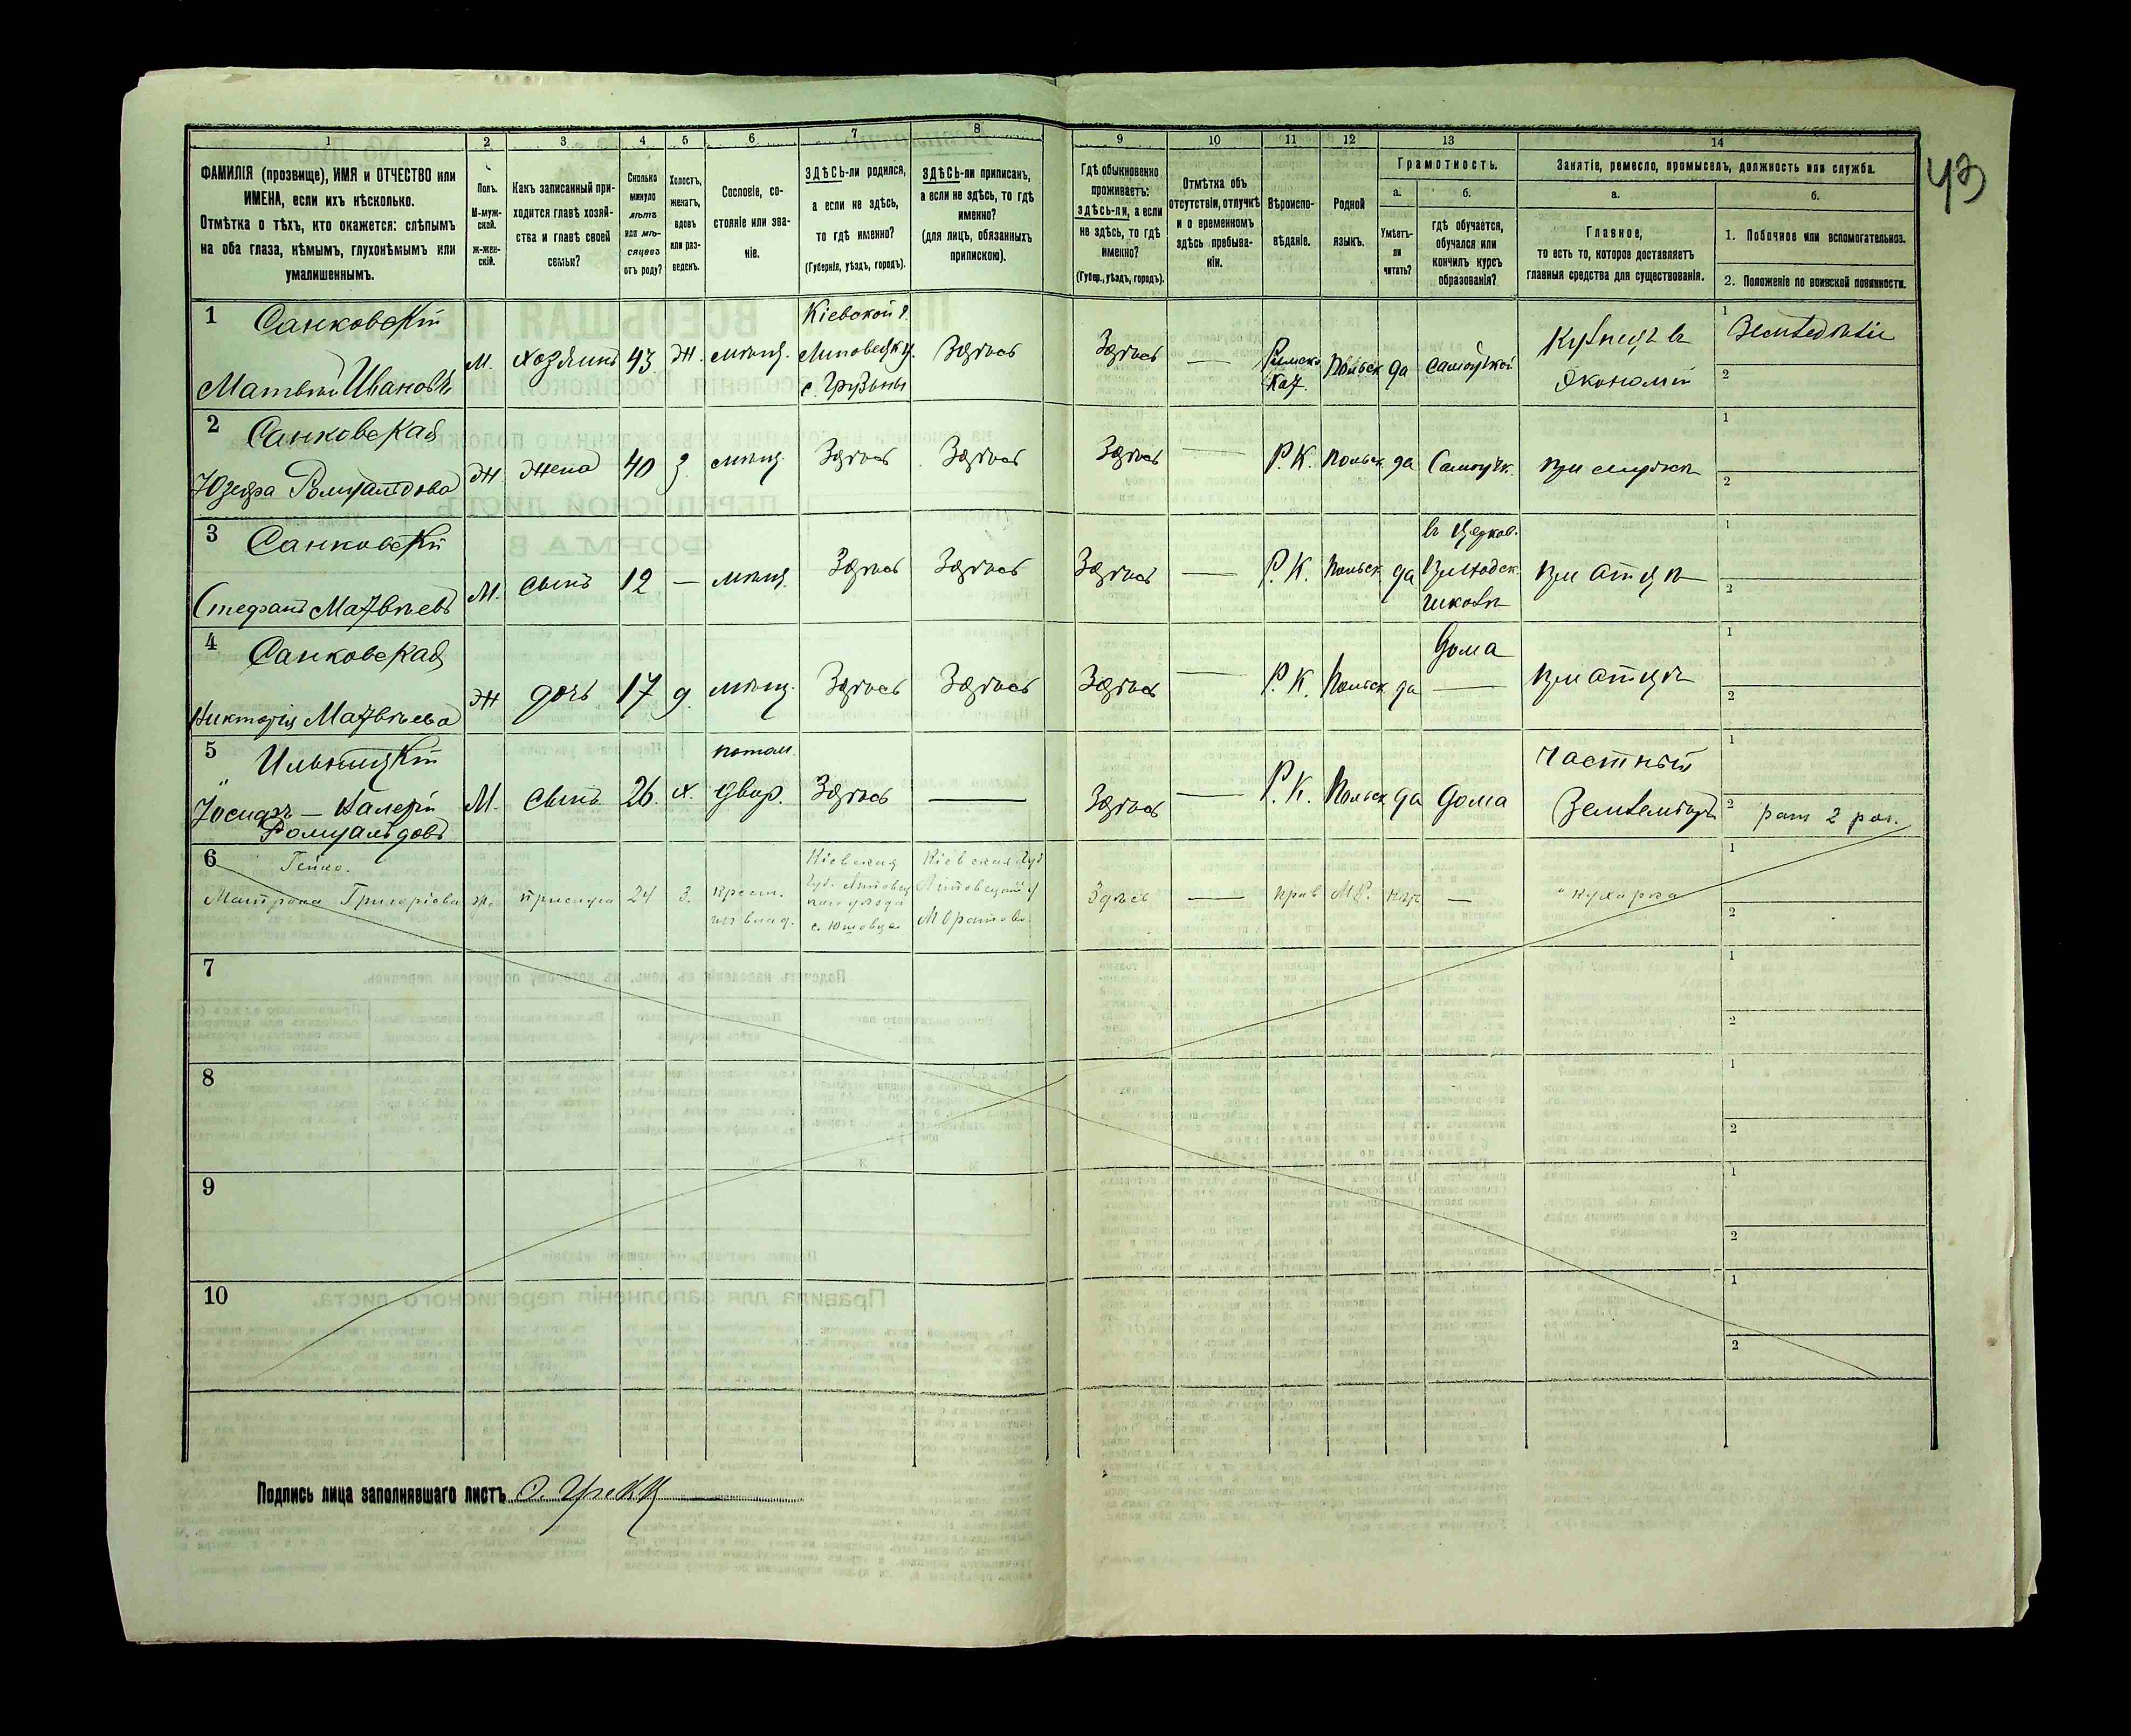 1 2 3 4 5 6 7 8 9 10 11 12 13 14
ФАМИЛІЯ (прозвище), ИМЯ и ОТЧЕСТВО или
ИМЕНА, если ихъ нѣсколько.
Отмѣтка о тѣхъ, кто окажется: слѣпымъ
на оба глаза, нѣмымъ, глухонѣмымъ или
умалишеннымъ.
Полъ.
М-муж-
ской.
ж-жен-
скій.
Какъ записанный при-
ходится главѣ хозяй-
ства и главѣ своей
семьи?
Сколько
минуло
лѣтъ
или мѣ-
сяцевъ
отъ роду?
Холостъ,
женатъ,
вдовъ
или раз-
веденъ.
Сословіе, со-
стояніе или зва-
ніе.
ЗДѢСЬ-ли родился,
а если не здѣсь,
то гдѣ именно?
(Губернія, уѣздъ, городъ).
ЗДѢСЬ-ли приписанъ,
а если не здѣсь, то гдѣ
именно?
(для лицъ, обязанныхъ
припискою).
Гдѣ обыкновенно
проживаетъ:
ЗДѢСЬ-ли, а если
не здѣсь, то гдѣ
именно?
(Губер., уѣздъ, городъ).
Отмѣтка объ
отсутствіи, отлучкѣ
и о временномъ
здѣсь пребыва-
ніи.
Вѣроиспо-
вѣданіе.
Родной
языкъ.
Грамотность.
а.
Умѣетъ-
ли
читать?
б.
гдѣ обучается,
обучался или
кончилъ курсъ
образованія?
Занятіе, ремесло, промыселъ, должность или служба.
а.
Главное,
то есть то, которое доставляетъ
главныя средства для существованія.
б.
1. Побочное или вспомогательное.
2. Положеніе по воинской повинности.
43
1 Санковскій
Матвѣй Ивановъ
М. хозяинъ 43 ж. мѣщ.
Кіевской г.
Липовецк у.
Здѣсь
Здѣсь —
Римско
Кат.
Польск да самоучкой
Кузнецъ въ
Экономіи
1 Земледѣліе
2
2 Санковская
Юзефа Ромуалдова
Ж жена 40 з. мѣщ. Здѣсь Здѣсь
Здѣсь — Р. К. Польск да Самоучк. при мужѣ
1
2
3 Санковскій
Стефанъ Матвѣевъ
М. сынъ 12 — мѣщ. Здѣсь Здѣсь
Здѣсь — Р. К. Польск да
въ Церков.
Приходск.
школѣ
при отцѣ
1
2
4 Санковская
Виктория Матвѣева
Ж дочь 17 д. мѣщ. Здѣсь Здѣсь
Здѣсь — Р. К. Польск да
Дома
—
при отцѣ
1
2
5 Ильницкій
Іосифъ — Валерій
Ромуальдовъ
М. сынъ 26. х.
потом.
двор.
Здѣсь —
Здѣсь — Р. К. Польск да Дома
Частный
Землемѣръ
1
2 рат 2 раз.
6 Гейко.
Матрона Григорьева
ж. прислуга 24 з.
крест.
из влад.
Кіевская
Губ.
уѣзда
Кіевская Губ
Здѣсь — прав М.Р. нѣт — кухарка
1
2
7
1
2
8
1
2
9
1
2
10
1
2
Подпись лица заполнявшаго листъ